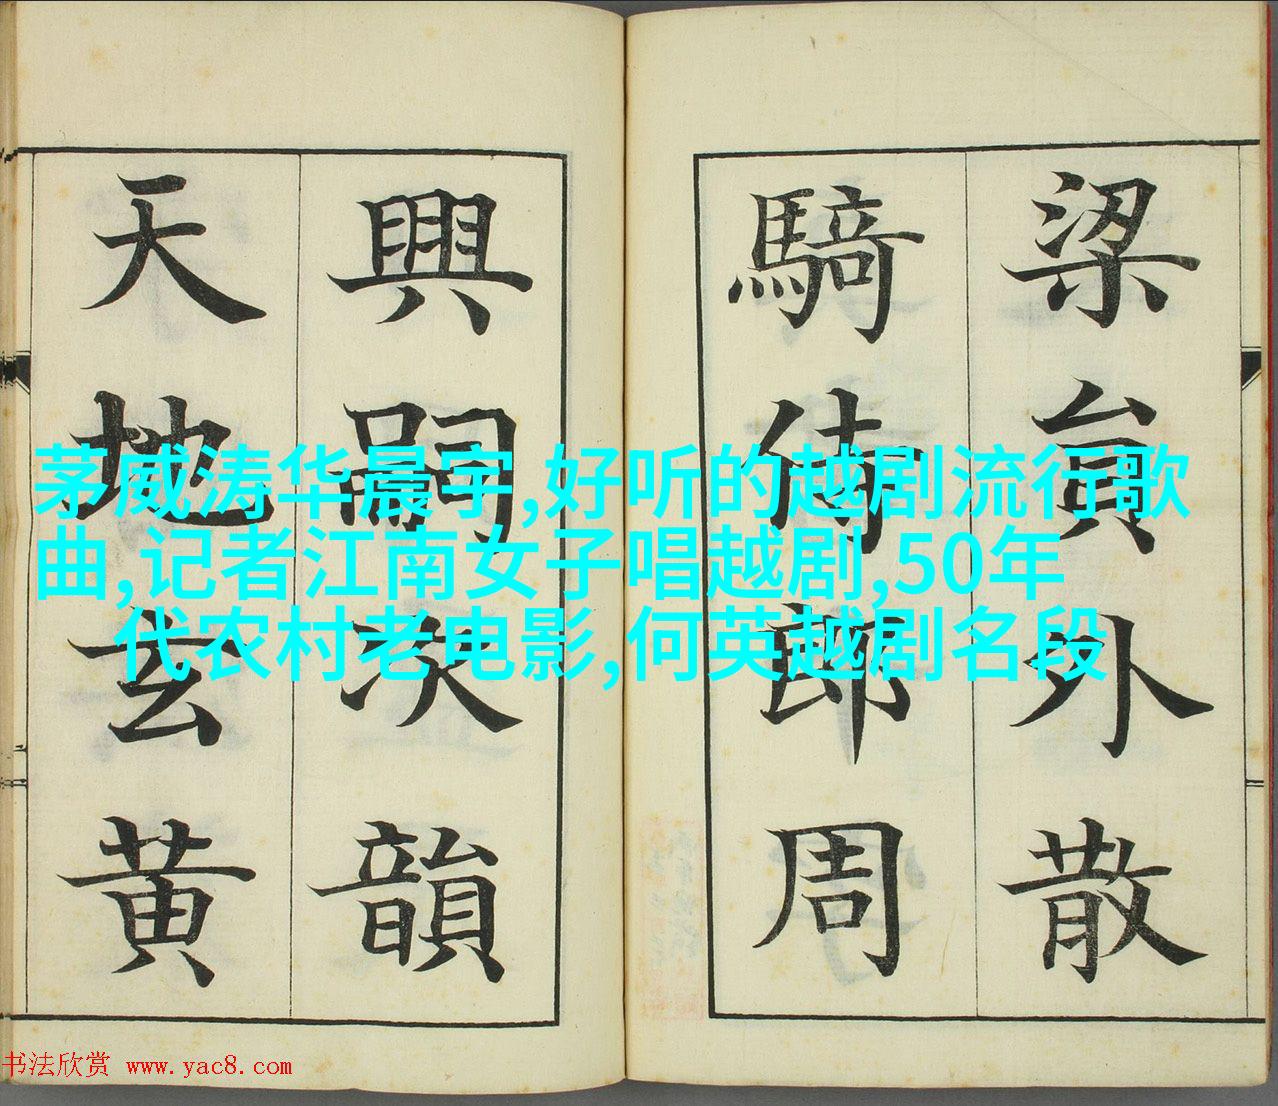 梁貟外散
騎侍郎周
興嗣次韻
天地玄黄
茅威涛华晨宇,好听的越剧流行歌
曲,记者江南女子唱越剧,50年
代农村老电影,何英越剧名段
书法欣赏 www.yac8.com